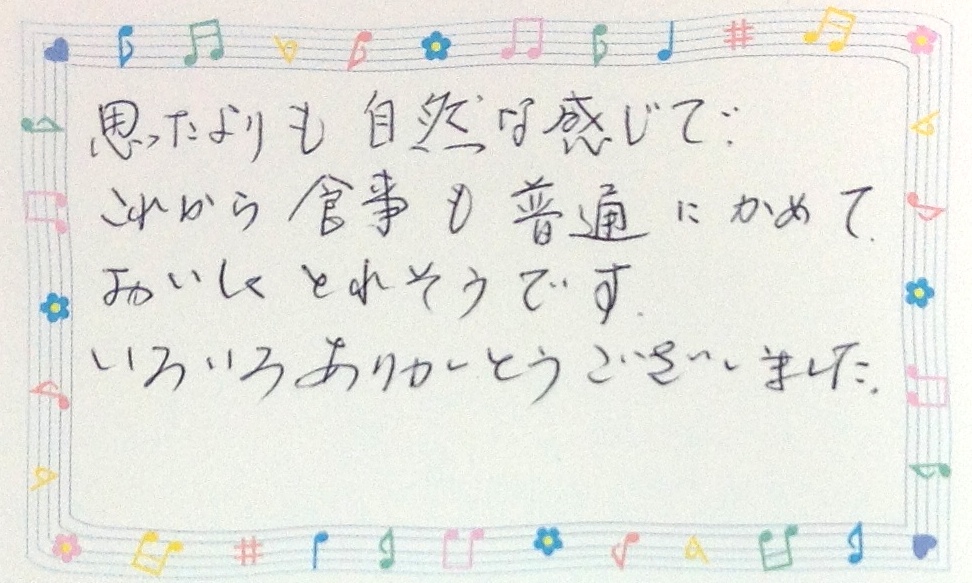 思ったよりも自然な感じで
これから食事も普通にかめて
おいしくとれそうです。
いろいろありがとうございました。